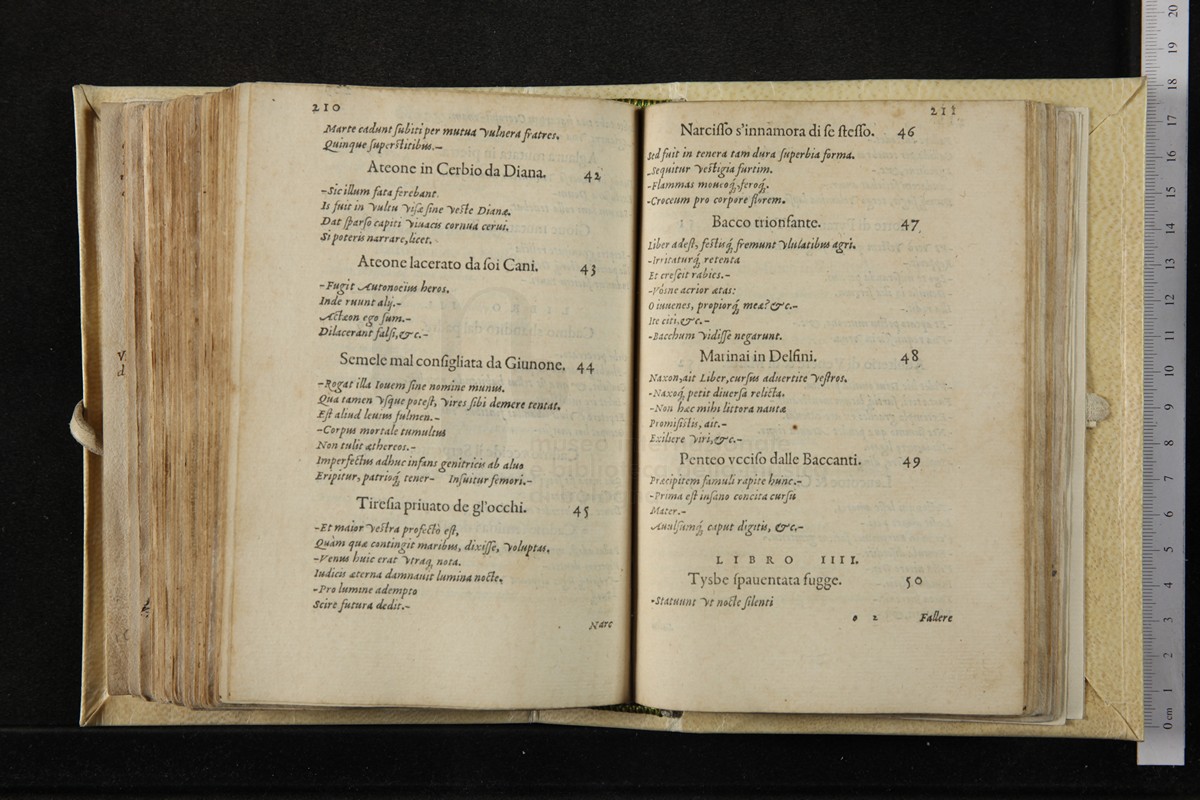 210
Marte cadunt subiti per mutua vulnera fratres.
Quinque superstitibus.-
Ateone in Cerbio da Diana. 42
-Sic illum fata ferebant.
Is fuit in vultu visæ sine veste Dianæ.
Dat sparso capiti viuacis cornua cerui.
Si poteris narrare, licet.
Ateone lacerato da soi Cani. 43
-Fugit Autonoeius heros.
Inde ruunt alij.-
Actæon ego sum.-
Dilacerant falsi, &c.-
Semele mal consigliata da Giunone. 44
-Rogat illa Iouem sine nomine munus.
Qua tamen vsque potest, vires sibi demere tentat.
Est aliud leuius fulmen.-
-Corpus mortale tumultus
Non tulit æthereos.-
Imperfectus adhuc infans genitricis ab aluo
Eripitur, patrioq; tener- Insuitur femori.-
Tiresia priuato de gl'occhi. 45
-Et maior vestra profectò est,
Quàm quæ contingit maribus, dixisse, voluptas.
-Venus huic erat vtraq; nota.
Iudicis æterna damnauit lumina nocte.
-Pro lumine adempto
Scire futura dedit.-
Narc
211
Narcisso s'innamora di se stesso. 46
Sed fuit in tenera tam dura superbia forma.
-Sequitur vestigia furtim.
-Flammas moueoq; feroq;.
-Croceum pro corpore florem.
Bacco trionfante. 47
Liber adest, festisq; fremunt vlulatibus agri.
-Irritaturq; retenta
Et crescit rabies.-
-Vósne acrior ætas:
O iuuenes, propiorq; meæ? &c.-
Ite citi, &c.-
-Bacchum vidisse negarunt.
Marinai in Delfini. 48
Naxon, ait Liber, cursus aduertite vestros.
-Naxoq; petit diuersa relicta.
-Non hæc mihi littora nautæ
Promisistis, ait.-
Exiliere viri, &c.-
Penteo vcciso dalle Baccanti. 49
Præcipitem famuli rapite hunc.-
-Prima est insano concita cursu
Mater.-
Auulsumq; caput digitis, &c.-
LIBRO IIII.
Tysbe spauentata fugge. 50
-Statuunt vt nocte silenti
o 2 Fallere